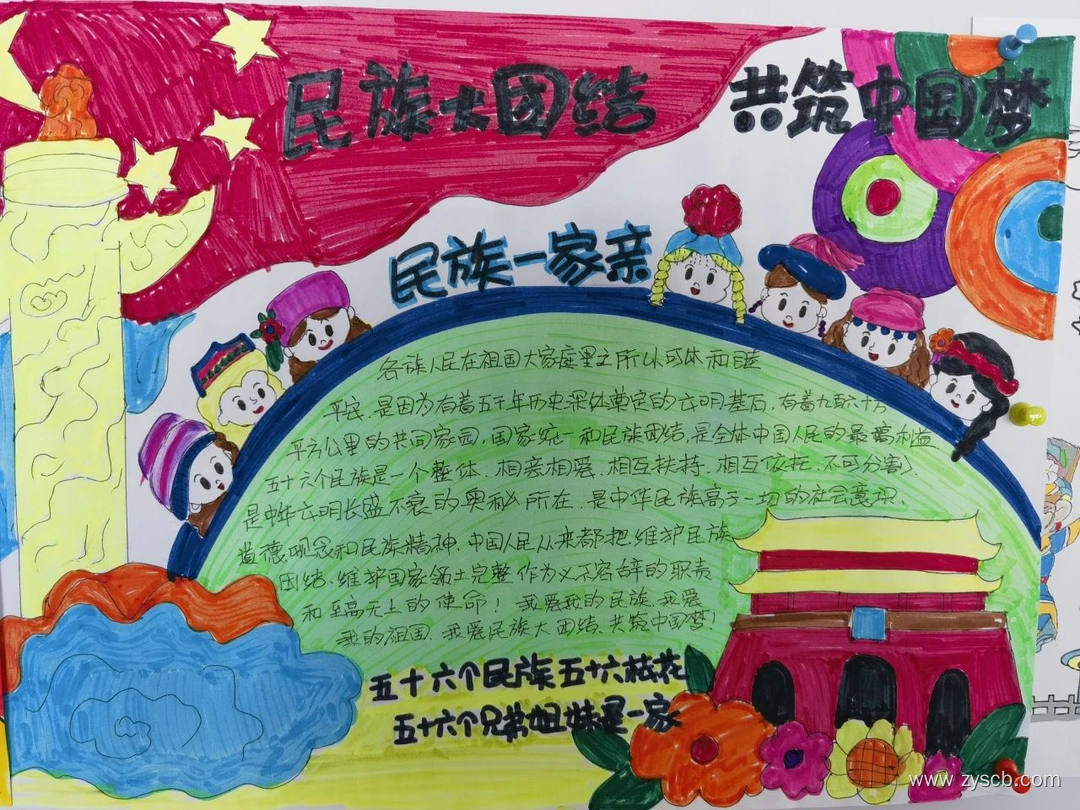 民族大团结 共筑中国梦
民族一家亲
各族人民在祖国大家庭里之所以可休和睦
平底.是因为有着五千年历史深处奠定的文明基石,有着九百六十万
平方公里的共同家园,国家统一和民族团结,是全体中国人民的最高利益
五十六个民族是一个整体.相亲相爱.相互扶持.相互依托.不可分割
是中华文明长盛不衰的奥秘所在.是中华民族高于一切的社会意识.
道德观念和民族精神.中国人民从来都把维护民族
团结.维护国家领土完整作为义不容辞的职责
和至高无上的使命!我爱我的民族.我爱
我的祖国.我爱民族大团结.共筑中国梦!
五十六个民族五十六枝花
五十六个兄弟姐妹是一家
www.zyscb.com